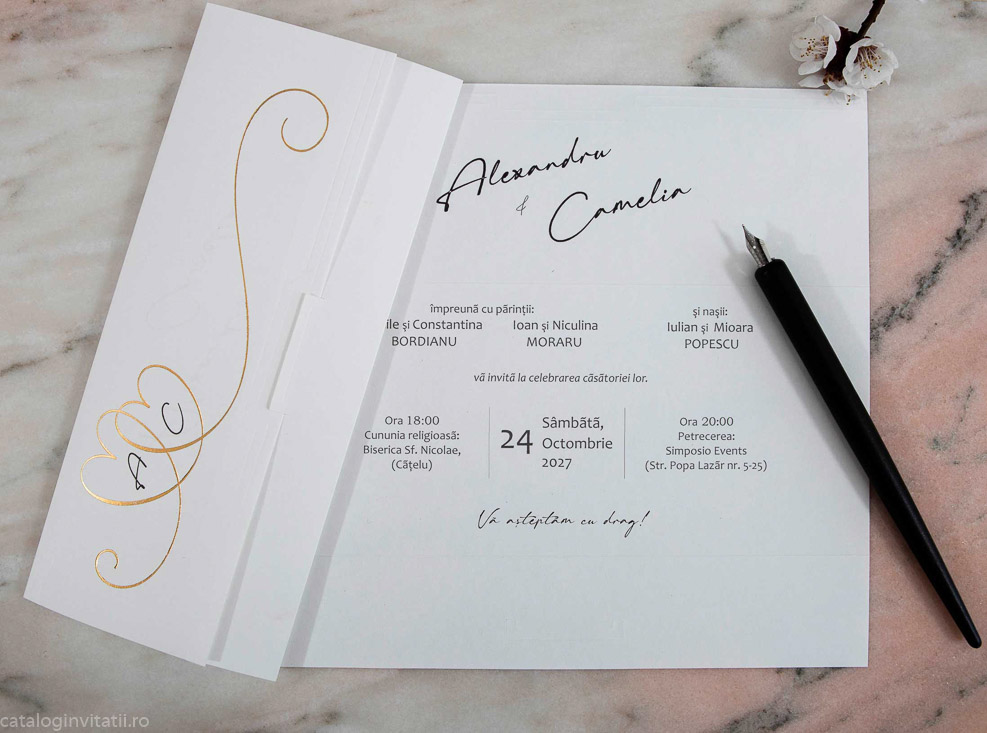 Alexandru
&
Camelia
împreună cu părinții:
și Constantina
BORDIANU
Ioan și Niculina
MORARU
și nașii:
Iulian și Mioara
POPESCU
vă invită la celebrarea căsătoriei lor.
Ora 18:00
Cununia religioasă:
Biserica Sf. Nicolae,
(Cățelu)
24
Sâmbătă,
Octombrie
2027
Ora 20:00
Petrecerea:
Simposio Events
(Str. Popa Lazăr nr. 5-25)
Vă așteptăm cu drag!
A
C
cataloginvitatii.ro